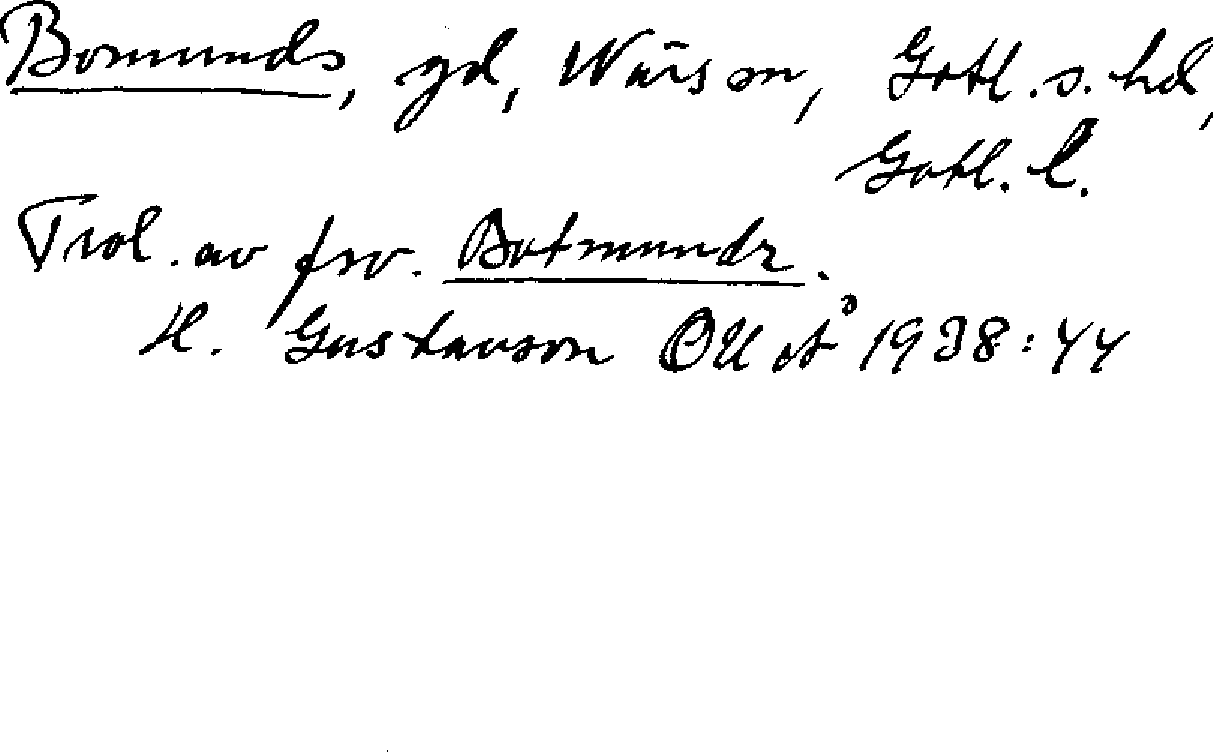 Bomunds, gd, sn, Gotl. s. hd,
Gotl. l.
Trol. av fsv. Botmundr.
H. Gustavson OU Å 1938:44